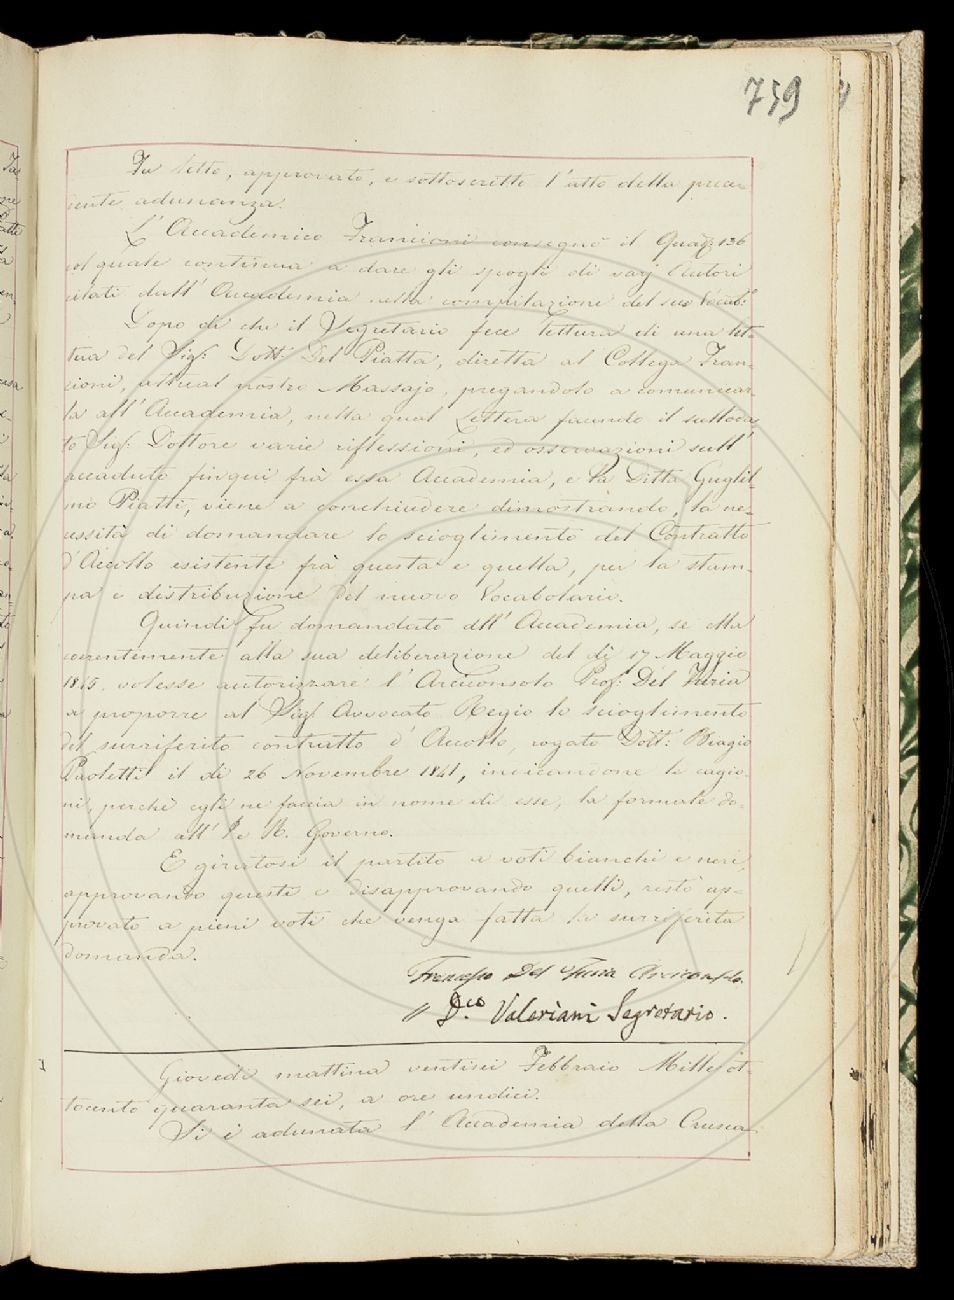 759
Fu letto, approvato, e sottoscritto l'atto della prece-
dente adunanza.
L'Accademico Francioni consegnò il Quad: 136
col quale continua a dare gli spogli di varj Autori
citati dall'Accademia nella compilazione del suo Vocab:º
Dopo di che il Segretario fece lettura di una let-
tera del Sig: Dott: Del Piatta, diretta al Collega Fran-
cioni, attual nostro Massajo, pregandolo a comunicar-
la all'Accademia, nella qual Lettera facendo il sulloda-
to Sig: Dottore varie riflessioni, ed osservazioni sull'
accaduto finqui frà essa Accademia, e la Ditta Gugliel-
mo Piatti, viene a conchiudere dimostrando, la ne-
cessità di domandare lo scioglimento del Contratto
d'Accollo esistente frà questa e quella, per la stam-
pa e distribuzione del nuovo Vocabolario.
Quindi fu domandato all'Accademia, se ella
coerentemente alla sua deliberazione del dì 17 Maggio
1845. volesse autorizzare l'Arciconsolo Prof: Del Furia
a proporre al Sig: Avvocato Regio lo scioglimento
del surriferito contratto d'Accollo, rogato Dott: Biagio
Paoletti il dì 26 Novembre 1841, indicandone le cagio-
ni, perchè egli ne faccia in nome di esse, la formale do-
manda all'I. e R. Governo.
E giratosi il partito a voti bianchi e neri,
approvando questi e disapprovando quelli, restò ap-
provato a pieni voti che venga fatta la surriferita
domanda.
Francesco Del Furia Arciconsolo.
D.co Valeriani Segretario.
Giovedì mattina ventisei Febbraio Mille ot-
tocento quaranta sei, a ore undici.
Si è adunata l'Accademia della Crusca